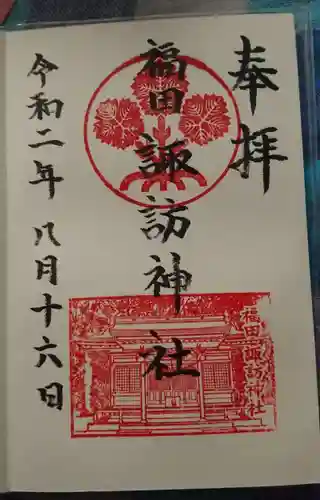 奉拝
福田諏訪神社
令和二年 八月十六日
福田諏訪神社